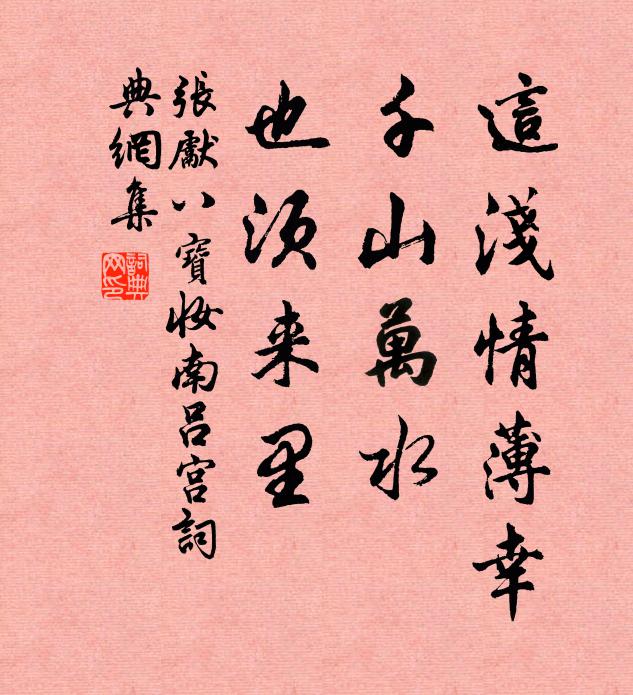 這淺情薄幸
千山萬水
也須来里
張獻八寶妝南呂宮詞
典網集
詞典網印